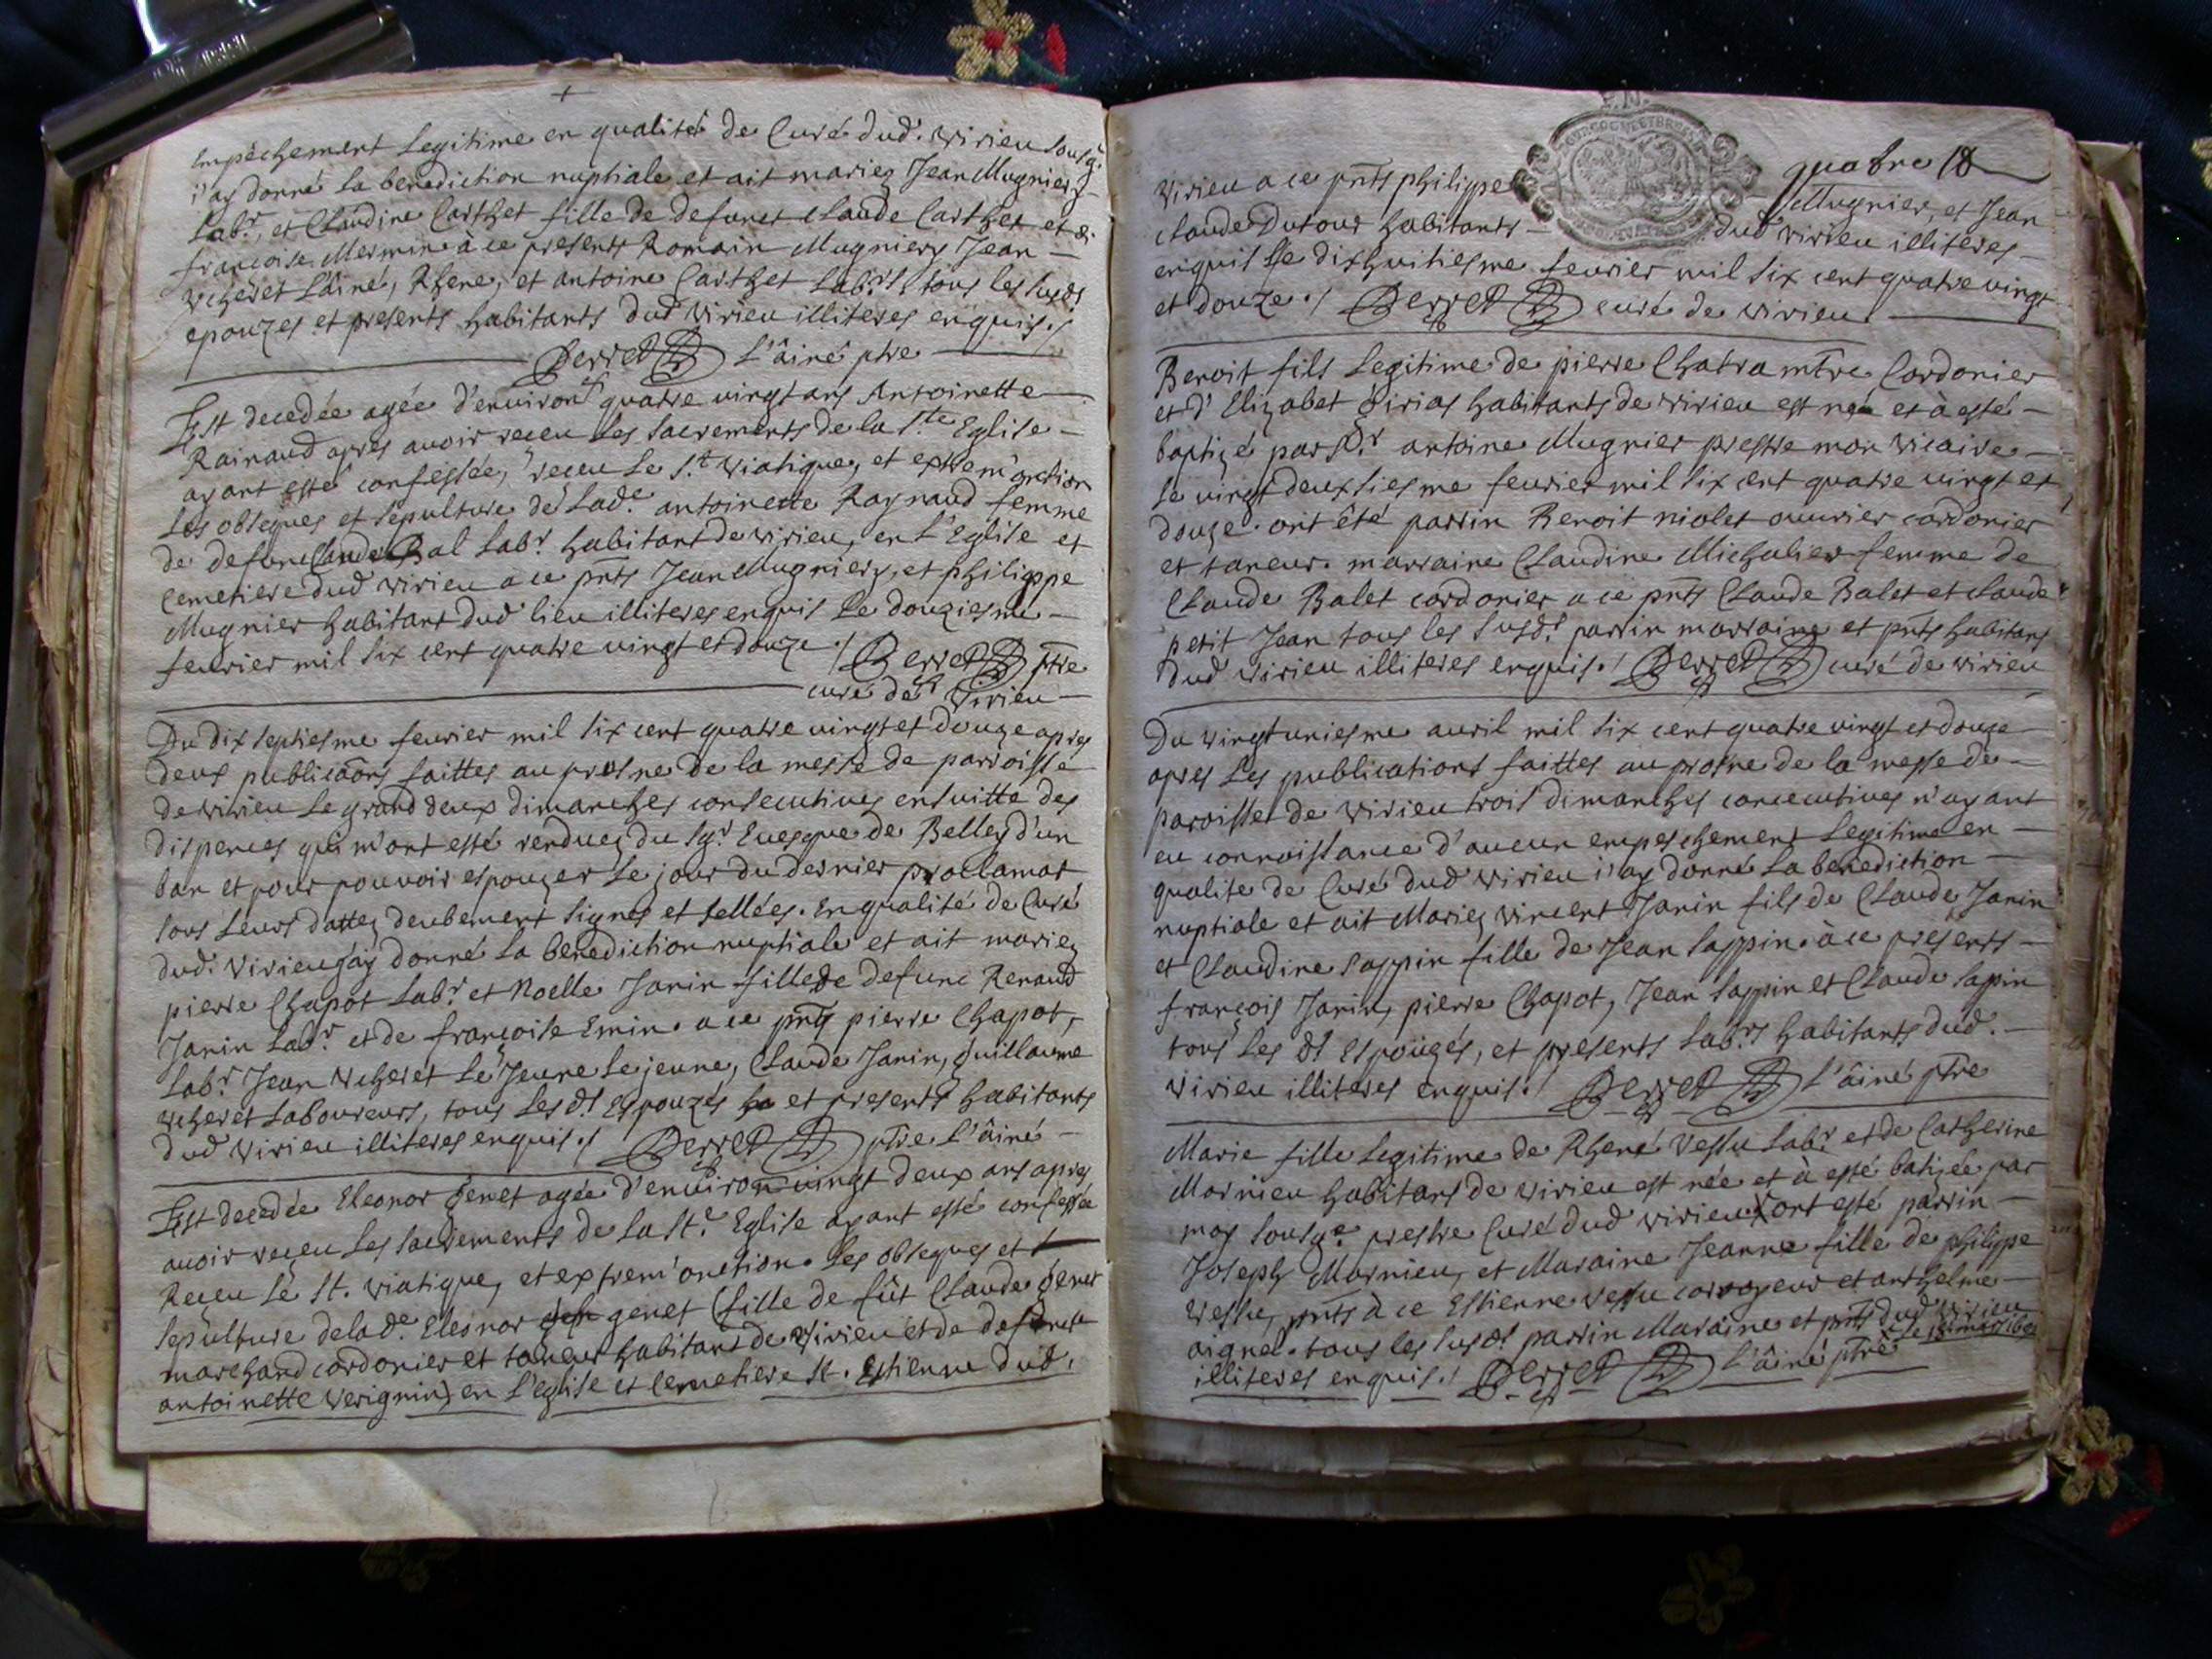 +
Empechement Legitime en qualité de Curé dud. virieu sousg.
i'ay donné la benediction nuptiale et ait mariez Jean Mugnier
Labr. et Claudine Carthet fille de defunct Claude Carthet et de
françoise Mermin à ce presents Romain Mugniery Jean
Vcheret L'ainé, Rhene, et antoine Carthet Labrs. tous les susds.
epouzes et presents habitants dud virieu illiteres enquis./
Perret L'âiné ptre
Est decedée agée d'environ quatre vingt ans Antoinette
Rainaud apres avoir receu les sacrements de la Ste. Eglise
ayant esté confessée, receu le St. viatique, et extrem'onction
Les obseques et sepulture de Lade. antoinette Raynaud femme
de defunc Claude Bal Labr. habitant de virieu, en L'Eglise et
cemetiere dud virieu a ce pnts Jean Mugniery, et philippe
Mugnier habitant dud lieu illiteres enquis Le douziesme
feurier mil six cent quatre vingt et douze ./ Perret ptre
curé de virieu
Du dix septiesme feurier mil six cent quatre vingt et douze apres
deux publicaons faittes au prosne de la messe de parroisse
de virieu Le grand deux dimanches consecutives ensuitte des
dispences qui m'ont esté rendues du Sgr. Euesque de Belley d'un
ban et pour pouvoir espouzer Le jour du dernier proclamat
sous Leurs dattes deubement signes et sellées. En qualité de Curé
dud. virieu j'ay donné La benediction nuptiale et ait mariez
pierre Chapot Labr. et Noelle Janin fille de defunc Renaud
Janin Labr. et de françoise Emin. a ce pnts pierre Chapot,
Labr. Jean Vcheret Le Jeune Le jeune, Claude Janin, guillaume
Vcheret Laboureurs, tous Les ds. Espouzés et presents habitants
dud virieu illiteres enquis ./ Perret ptre L'âiné
Est decedée Eleonor genet agée d'environ vingt deux ans apres
avoir receu Les sacrements de La Ste. Eglise ayant esté confessée
Receu Le St. viatique, et extrem'onction. Les obseques et
sepulture de lade. Eleonor genet (fille de fût Claude genet
marchand cordonier et taneur habitant de virieu et de defuncte
antoinette Verignin) en L'eglise et cemetiere St. Estienne dud.
quatre 18
virieu a ce pnts philippe Mugnier, et Jean
Claude Dutour habitants dud virieu illiteres
enquis Le dixhuitiesme feurier mil six cent quatre vingt
et douze ./ Perret curé de virieu.
Benoit fils Legitime de pierre Chatra mtre Cordonier
et d'Elizabet girias habitants de virieu est née et à esté
baptizé par Sr. antoine Mugnier prestre mon vicaire
Le vingt deuxsiesme feurier mil six cent quatre vingt et
douze. ont été parrin Benoit niolet ouurier cordonier
et taneur. marraine Claudine Michalier femme de
Claude Balet cordonier a ce pnts Claude Balet et claude
petit Jean tous les susds. parrin marraine et pnts habitans
dud virieu illiteres enquis./ Perret curé de virieu
Du vingt uniesme auril mil six cent quatre vingt et douze
apres Les publications faittes au prosne de la messe de
paroisse de virieu trois dimanches concecutives n'ayant
eu connoissance d'aucun empeschement Legitime en
qualite de Curé dud virieu i'ay donné La benediction
nuptiale et ait Mariez vincent Janin fils de Claude Janin
et Claudine Sappin fille de Jean Sappin. à ce presents
françois Janin, pierre Chapot, Jean Sappin et Claude Sapin
tous Les ds Espouzés, et presents Labrs. habitants dud.
virieu illiteres enquis./ Perret L'âiné ptre
Marie fille Legitime de Rhené Vessu Labr. et de Catherine
Mornieu habitans de virieu est née et à esté batizée par
moy sousge. prestre Curé dud virieu X ont esté parrin
Joseph Mornieu, et Maraine Jeanne fille de philippe
Vessu, pnts à ce Estienne Vessu corroyeur et anthelme
aigne. tous les susds parrin Maraine et pnts dud virieu
illiteres enquis./ Perret L'âiné ptre